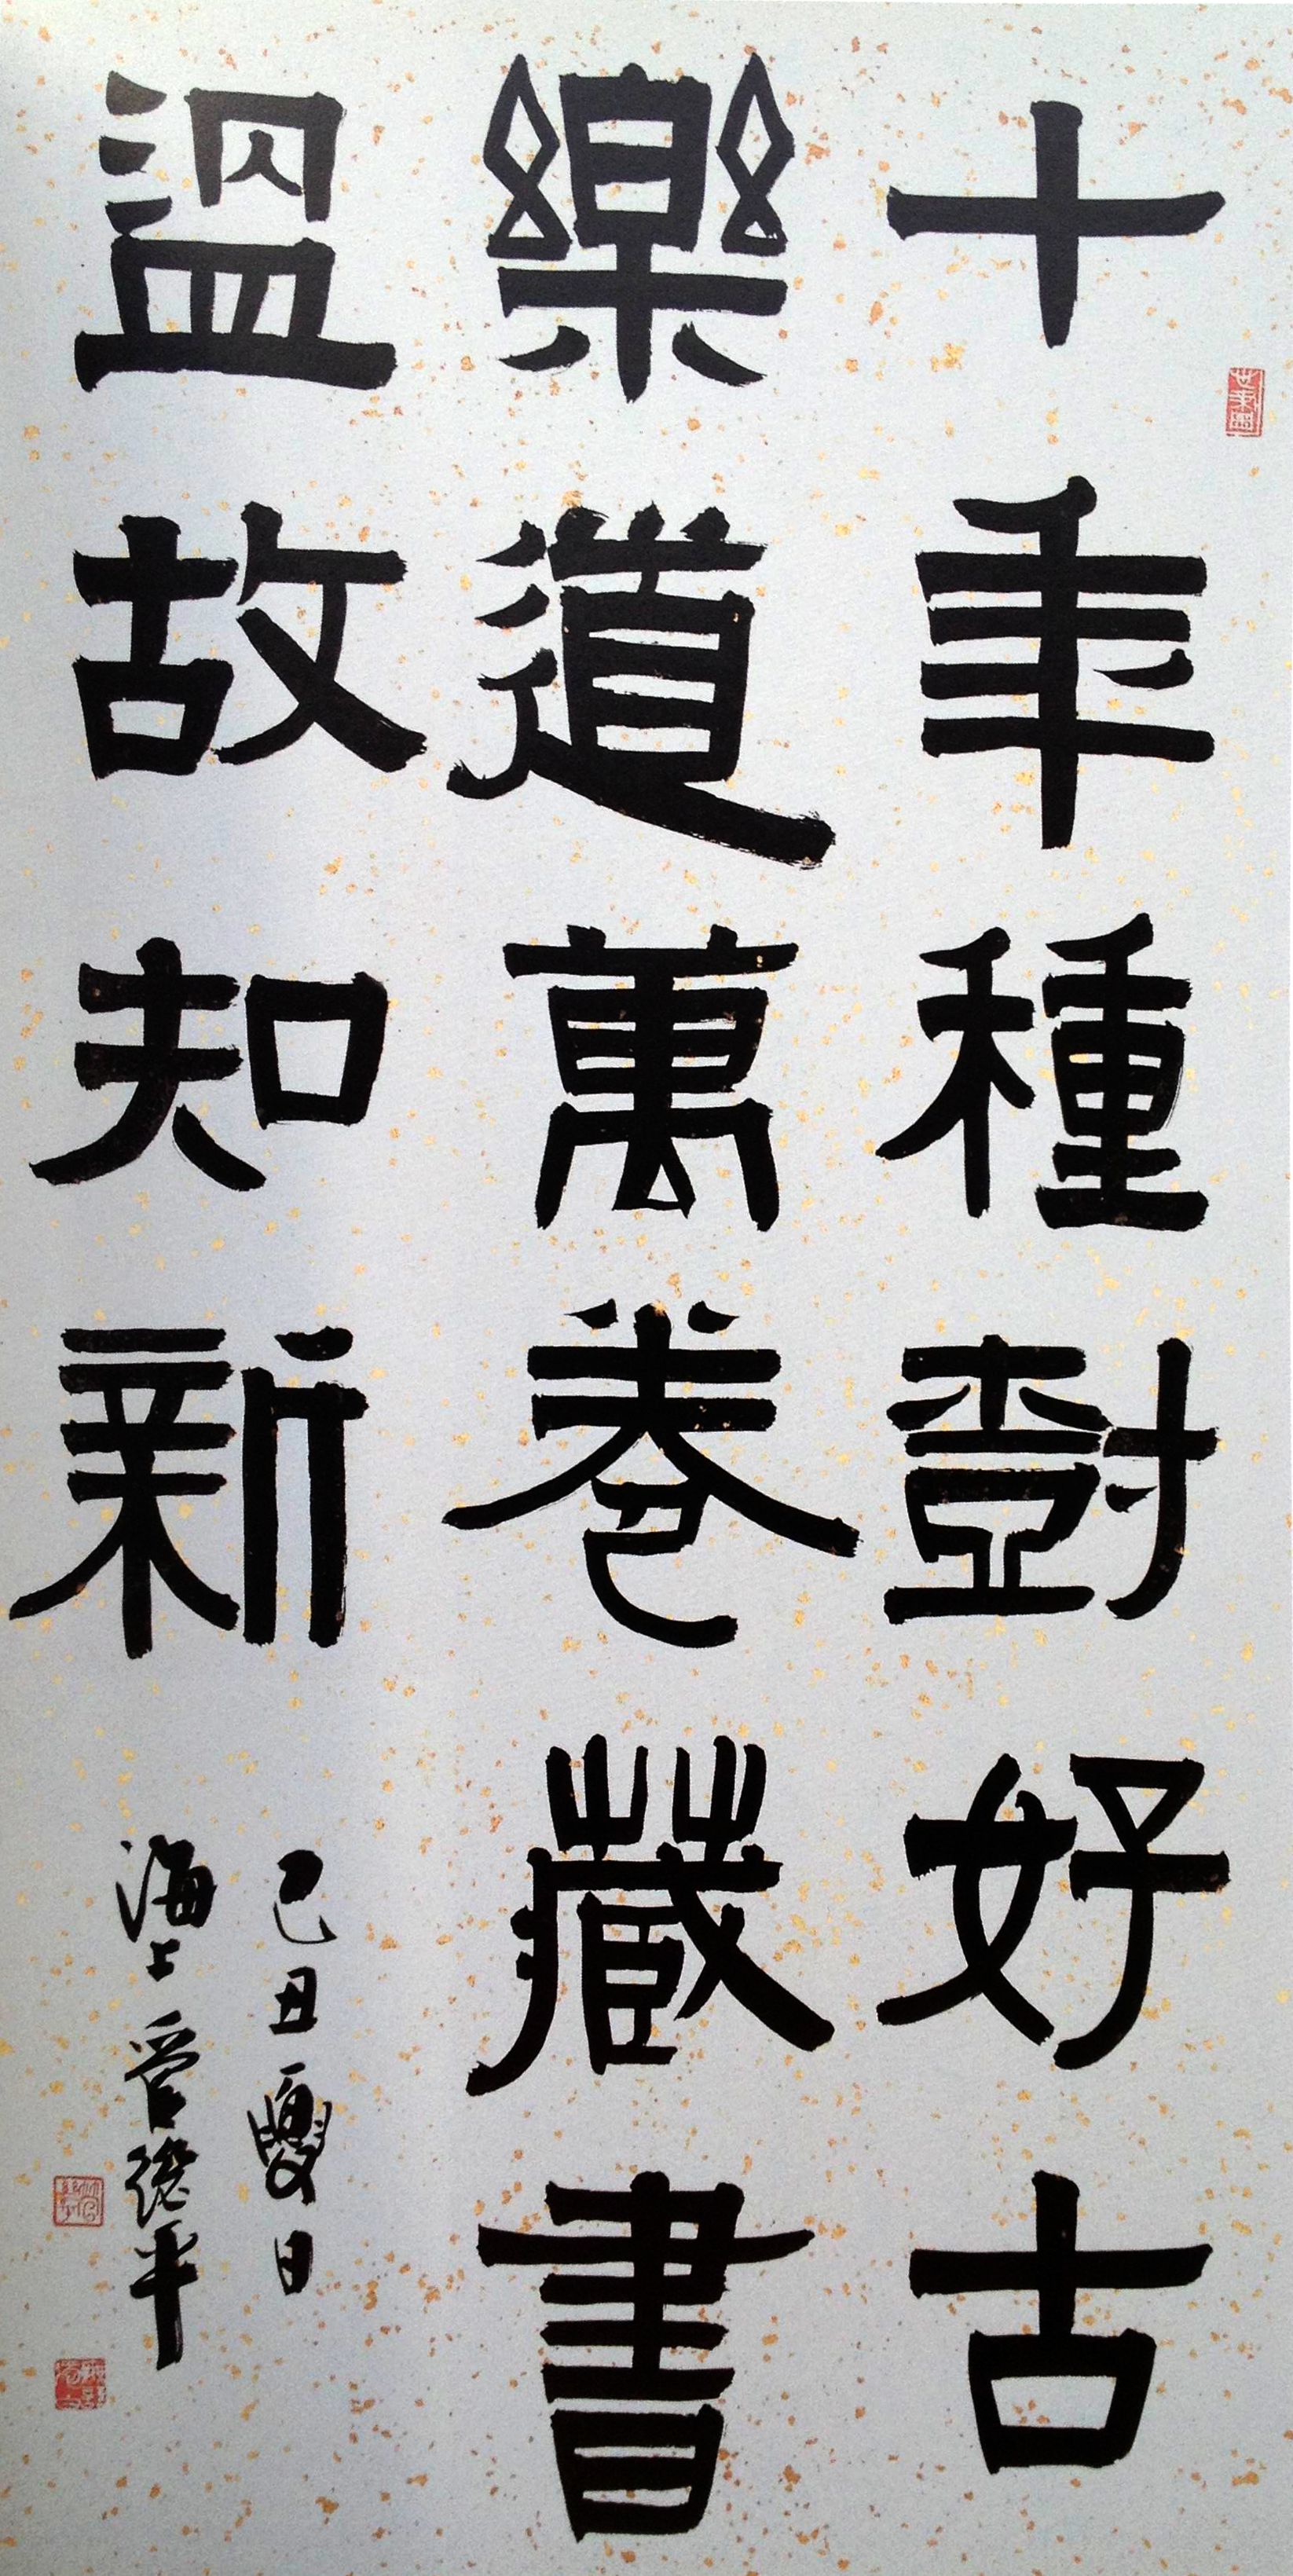 十年種樹好古
樂道萬卷藏書
溫故知新
己丑夏日
海上管继平